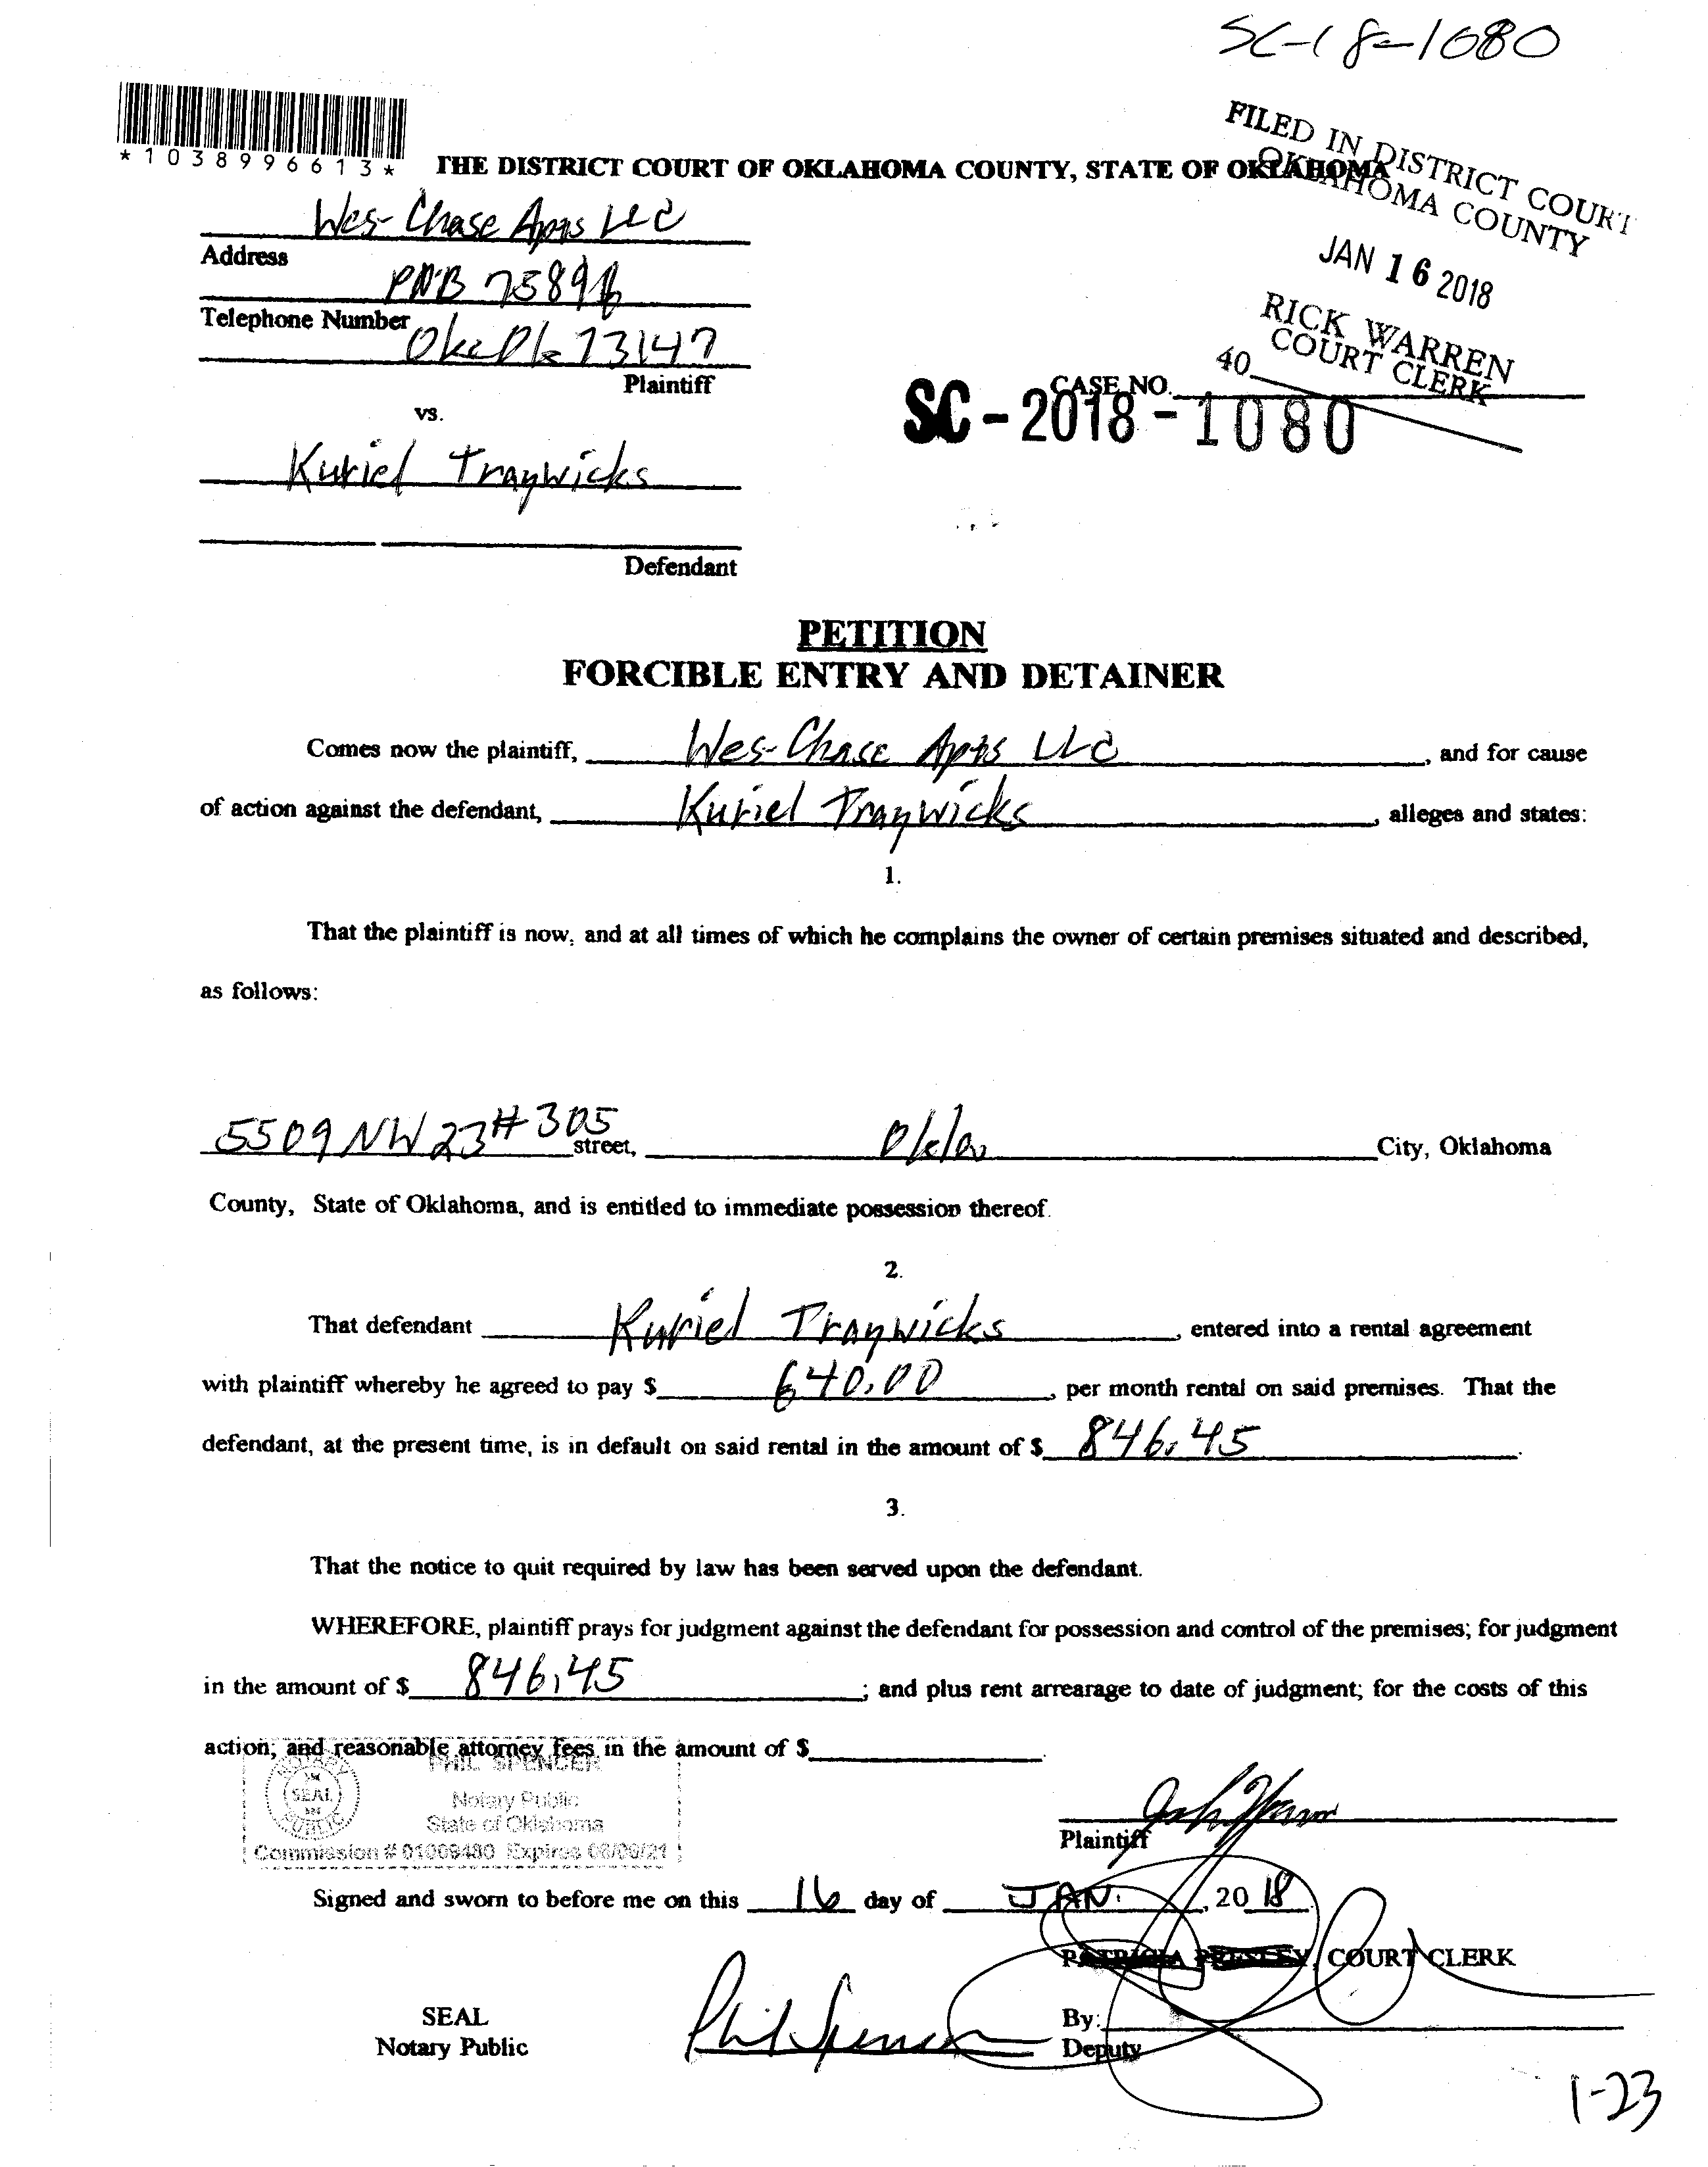 SC-18-1080
*1038996613*
THE DISTRICT COURT OF OKLAHOMA COUNTY, STATE OF OKLAHOMA
FILED IN DISTRICT COURT
OKLAHOMA COUNTY
JAN 16 2018
RICK WARREN
COURT CLERK
40
Wes-Chase Apts LLC
Address
POB 75891
Telephone Number
73147
Plaintiff
CASE NO.
SC-2018-1080
vs.
Kuriel Traywicks
Defendant
PETITION
FORCIBLE ENTRY AND DETAINER
Comes now the plaintiff, Wes-Chase Apts LLC, and for cause
of action against the defendant, Kuriel Traywicks, alleges and states:
1.
That the plaintiff is now, and at all times of which he complains the owner of certain premises situated and described,
as follows:
5509 NW 23 #305 street, Okla City, Oklahoma
County, State of Oklahoma, and is entitled to immediate possession thereof.
2.
That defendant Kuriel Traywicks, entered into a rental agreement
with plaintiff whereby he agreed to pay $ 640.00, per month rental on said premises. That the
defendant, at the present time, is in default on said rental in the amount of $ 846.45.
3.
That the notice to quit required by law has been served upon the defendant.
WHEREFORE, plaintiff prays for judgment against the defendant for possession and control of the premises; for judgment
in the amount of $ 846.45; and plus rent arrearage to date of judgment; for the costs of this
action; and reasonable attorney fees in the amount of $
PHIL SPENCER
NOTARY SEAL PUBLIC
Notary Public
State of Oklahoma
Commission # 01009480 Expires
Plaintiff
Signed and sworn to before me on this 16 day of JAN., 20 18
PATRICIA PRESLEY, COURT CLERK
SEAL
Notary Public
Phil Spencer
By:
Deputy
1-23